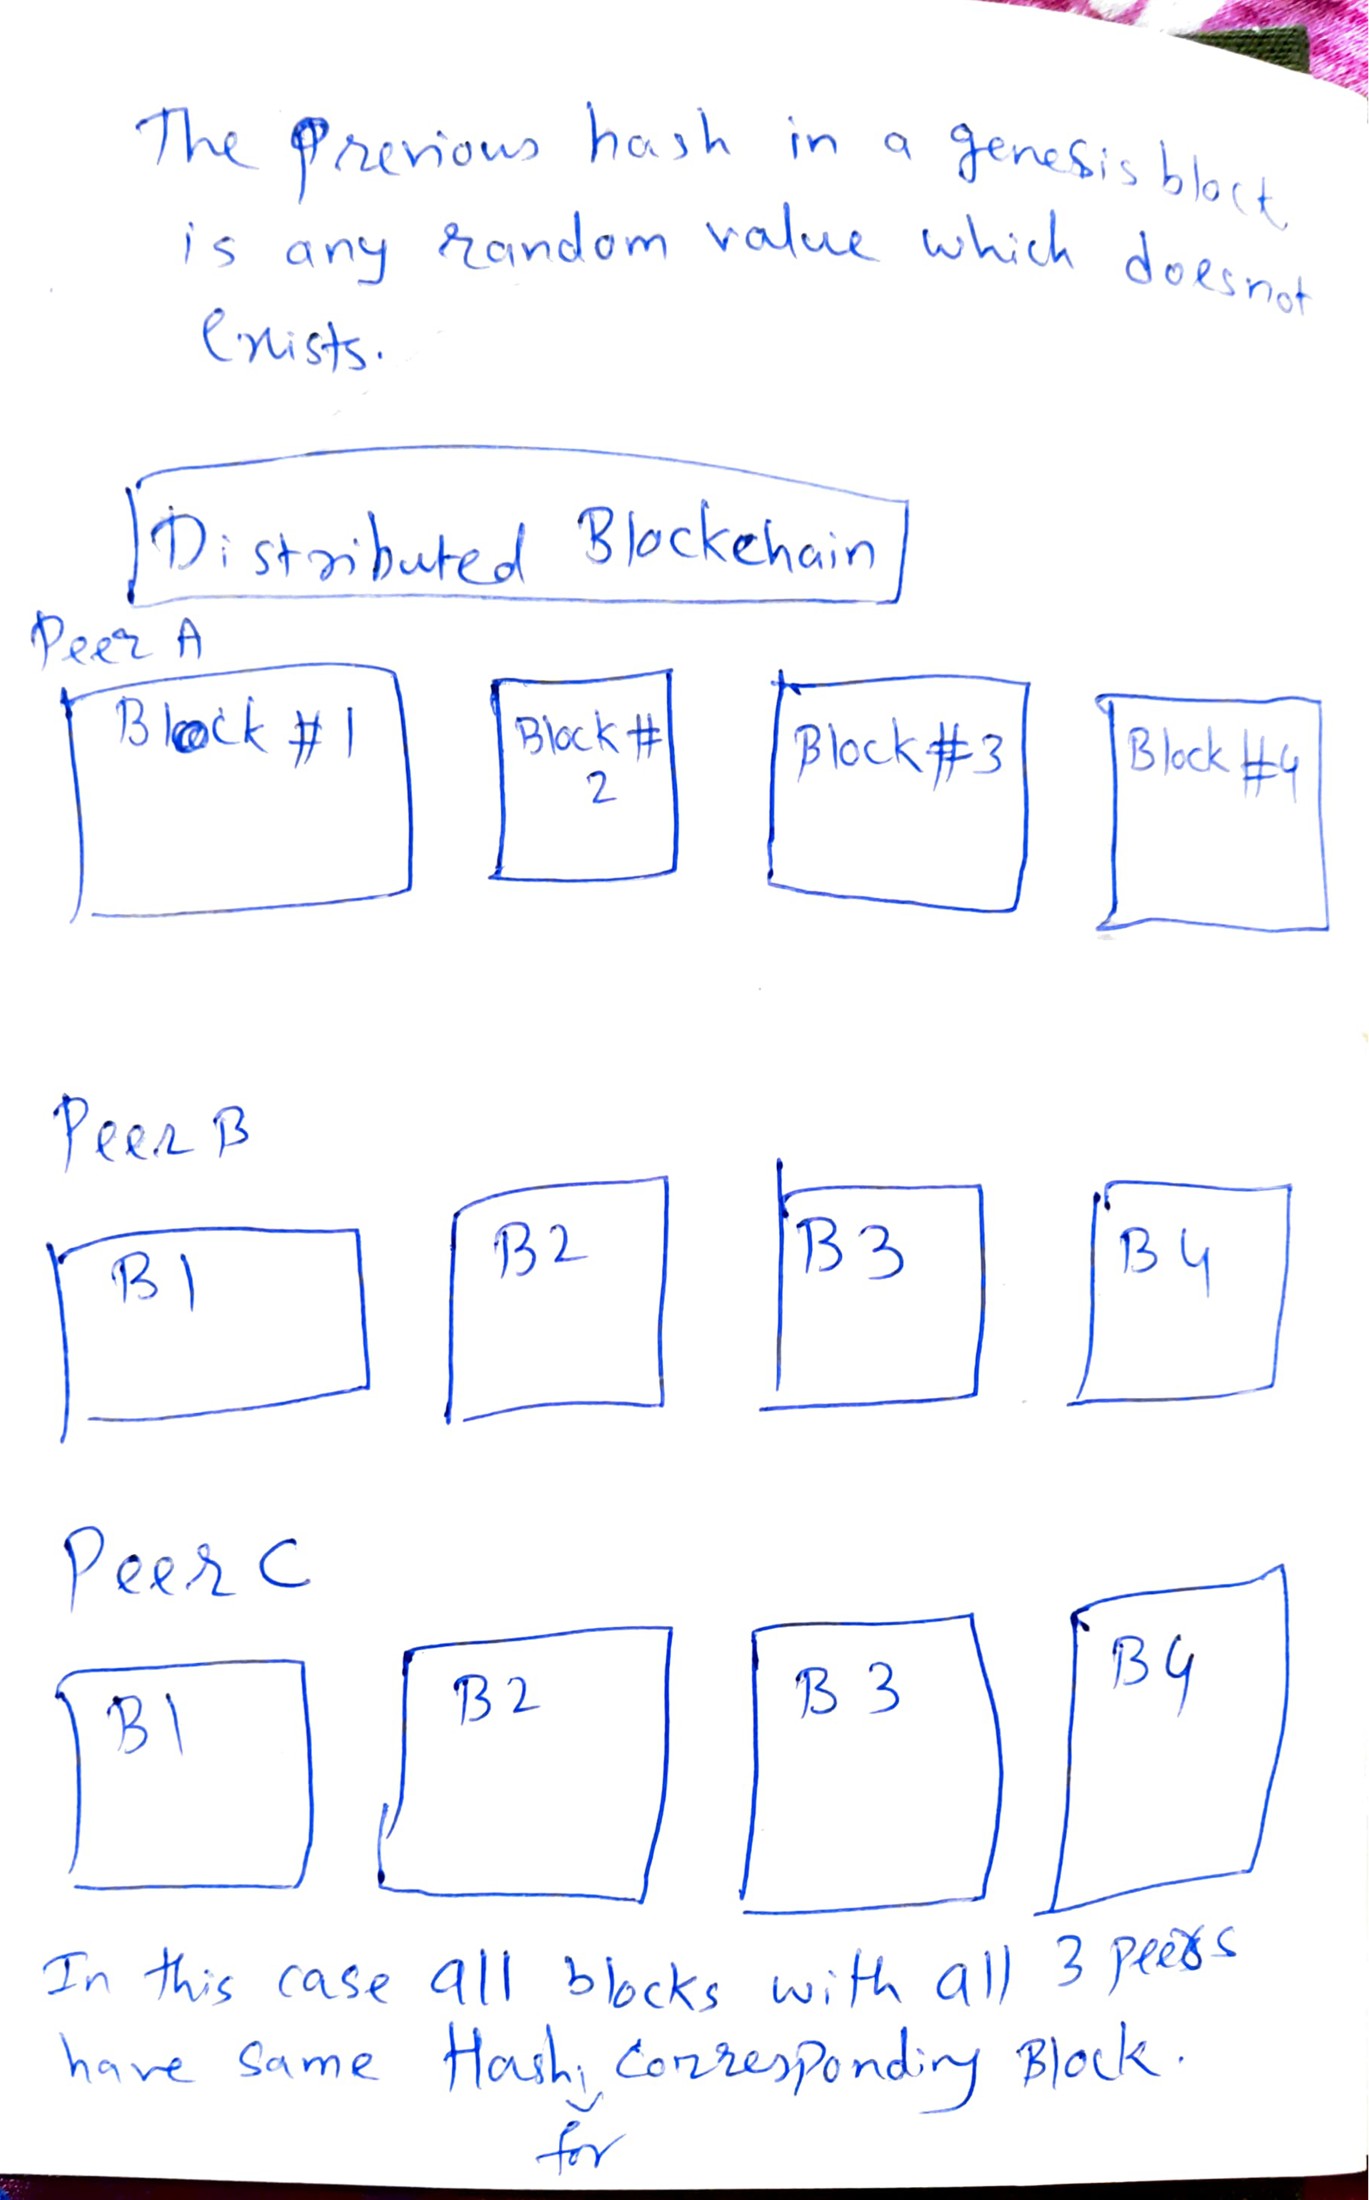 The Previous hash in a genesis block
is any random value which doesnot
Exists.
Distributed Blockchain
Peer A
Block #1 Block # Block #3 Block #4
2
Peer B
B1 B2 B3 B4
Peer C
B1 B2 B3 B4
In this case all blocks with all 3 peers
have same Hash, Corresponding Block.
for